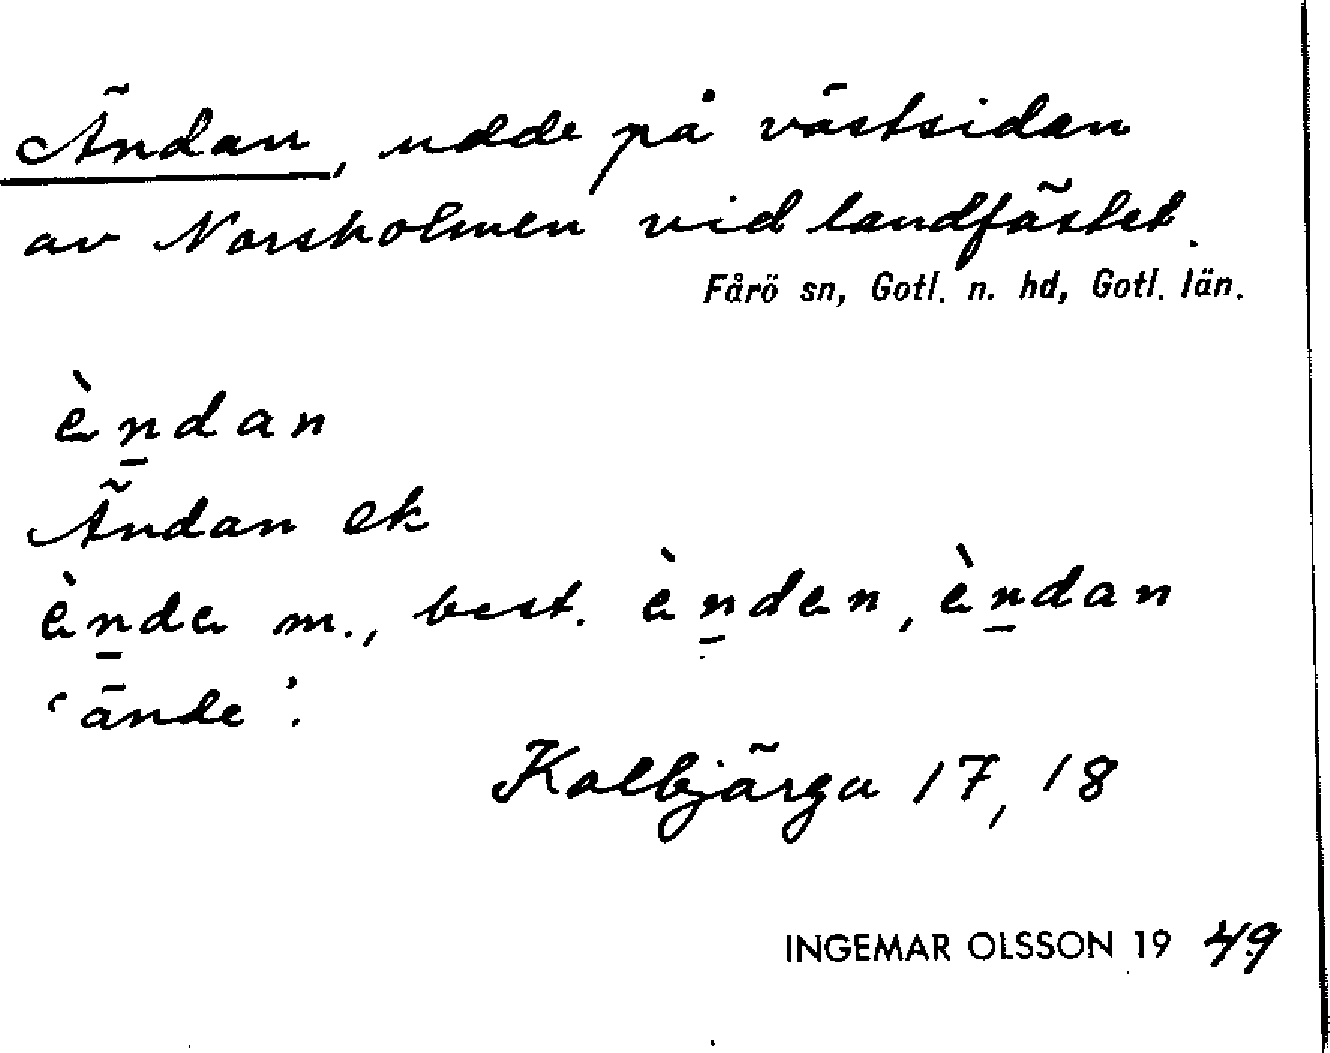 Ändan, udde på västsidan
av Norsholmen vid landfästet.
Fårö sn, Gotl. n. hd, Gotl. län.
èn̲dan
Ändan ek
èn̲da m., best. èn̲den, èn̲dan
‘ände’.
Kalbjärga 17, 18
INGEMAR OLSSON 19 49